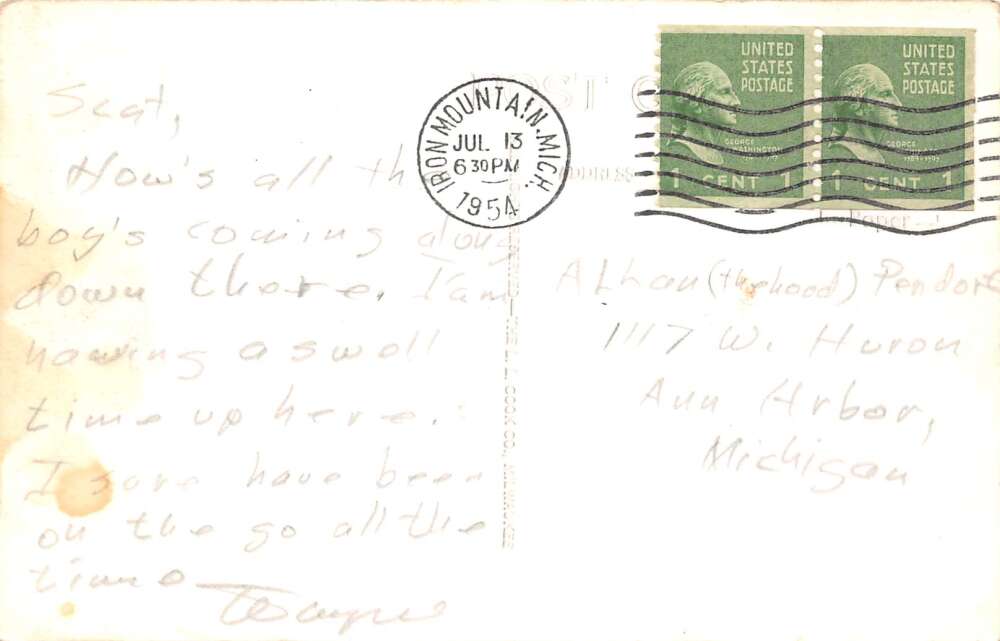 Scat,
How's all the
boy's coming along
down there. I am
having a swell
time up here.
I sure have been
on the go all the
time
Wayne
POST C
ADDRESS
Paper
IRON MOUNTAIN, MICH.
JUL 13
6 30 PM
1954
UNITED
STATES
POSTAGE
GEORGE
WASHINGTON
1 CENT 1
UNITED
STATES
POSTAGE
GEORGE
1 CENT 1
(the hood)
1117 W. Huron
Ann Arbor,
Michigan